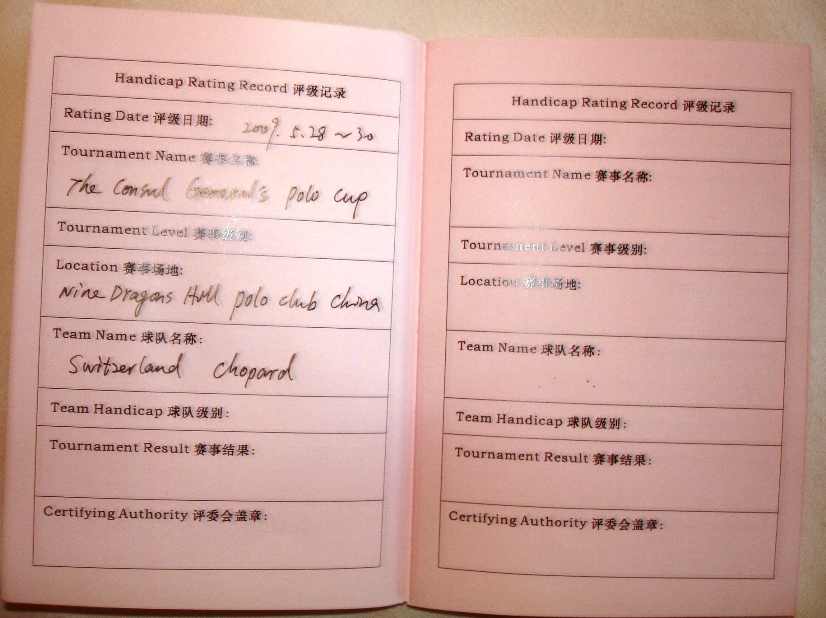 Handicap Rating Record 评级记录
Rating Date 评级日期: 2009. 5.28 ~ 30
Tournament Name 赛事名称:
The Consul General's polo cup
Tournament Level 赛事级别:
Location 赛事场地:
Nine Dragons Hill polo club China
Team Name 球队名称:
Switzerland chopard
Team Handicap 球队级别:
Tournament Result 赛事结果:
Certifying Authority 评委会盖章:
Handicap Rating Record 评级记录
Rating Date 评级日期:
Tournament Name 赛事名称:
Tournament Level 赛事级别:
Location 赛事场地:
Team Name 球队名称:
Team Handicap 球队级别:
Tournament Result 赛事结果:
Certifying Authority 评委会盖章: